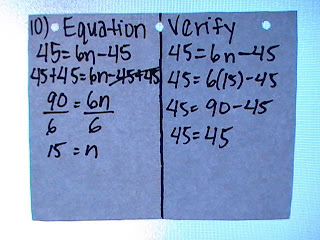 10) Equation
45=6n-45
45+45=6n-45+45
90 = 6n
6 6
15 = n
Verify
45=6n-45
45=6(15)-45
45=90-45
45=45